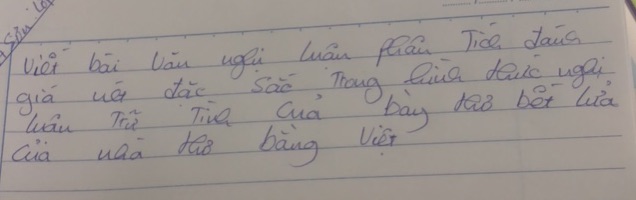 Viết bài văn nghị luận phân Tích đánh
giá nét đặc sắc Trong hình thức nghị
luận Trữ Tình Của bàng thơ bết lửa
Của nhà thơ bằng Việt